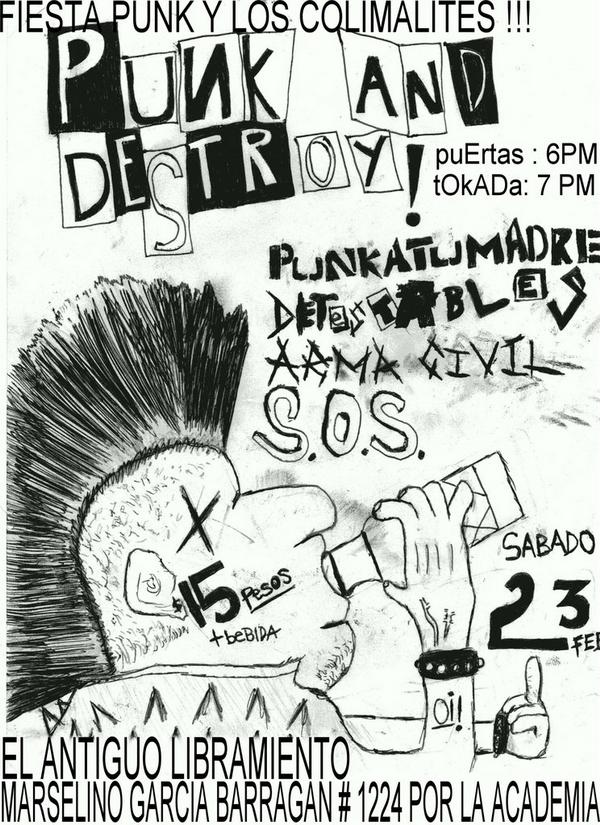 FIESTA PUNK Y LOS COLIMALITES !!!
PUNK AND
DESTROY!
puErtas : 6PM
tOkADa: 7 PM
PUNKATUMADRE
DETESTABLES
ARMA CIVIL
S.O.S.
X
SABADO
23
FEB
$15 PESOS
+ beBIDA
Oi!
EL ANTIGUO LIBRAMIENTO
MARSELINO GARCIA BARRAGAN # 1224 POR LA ACADEMIA